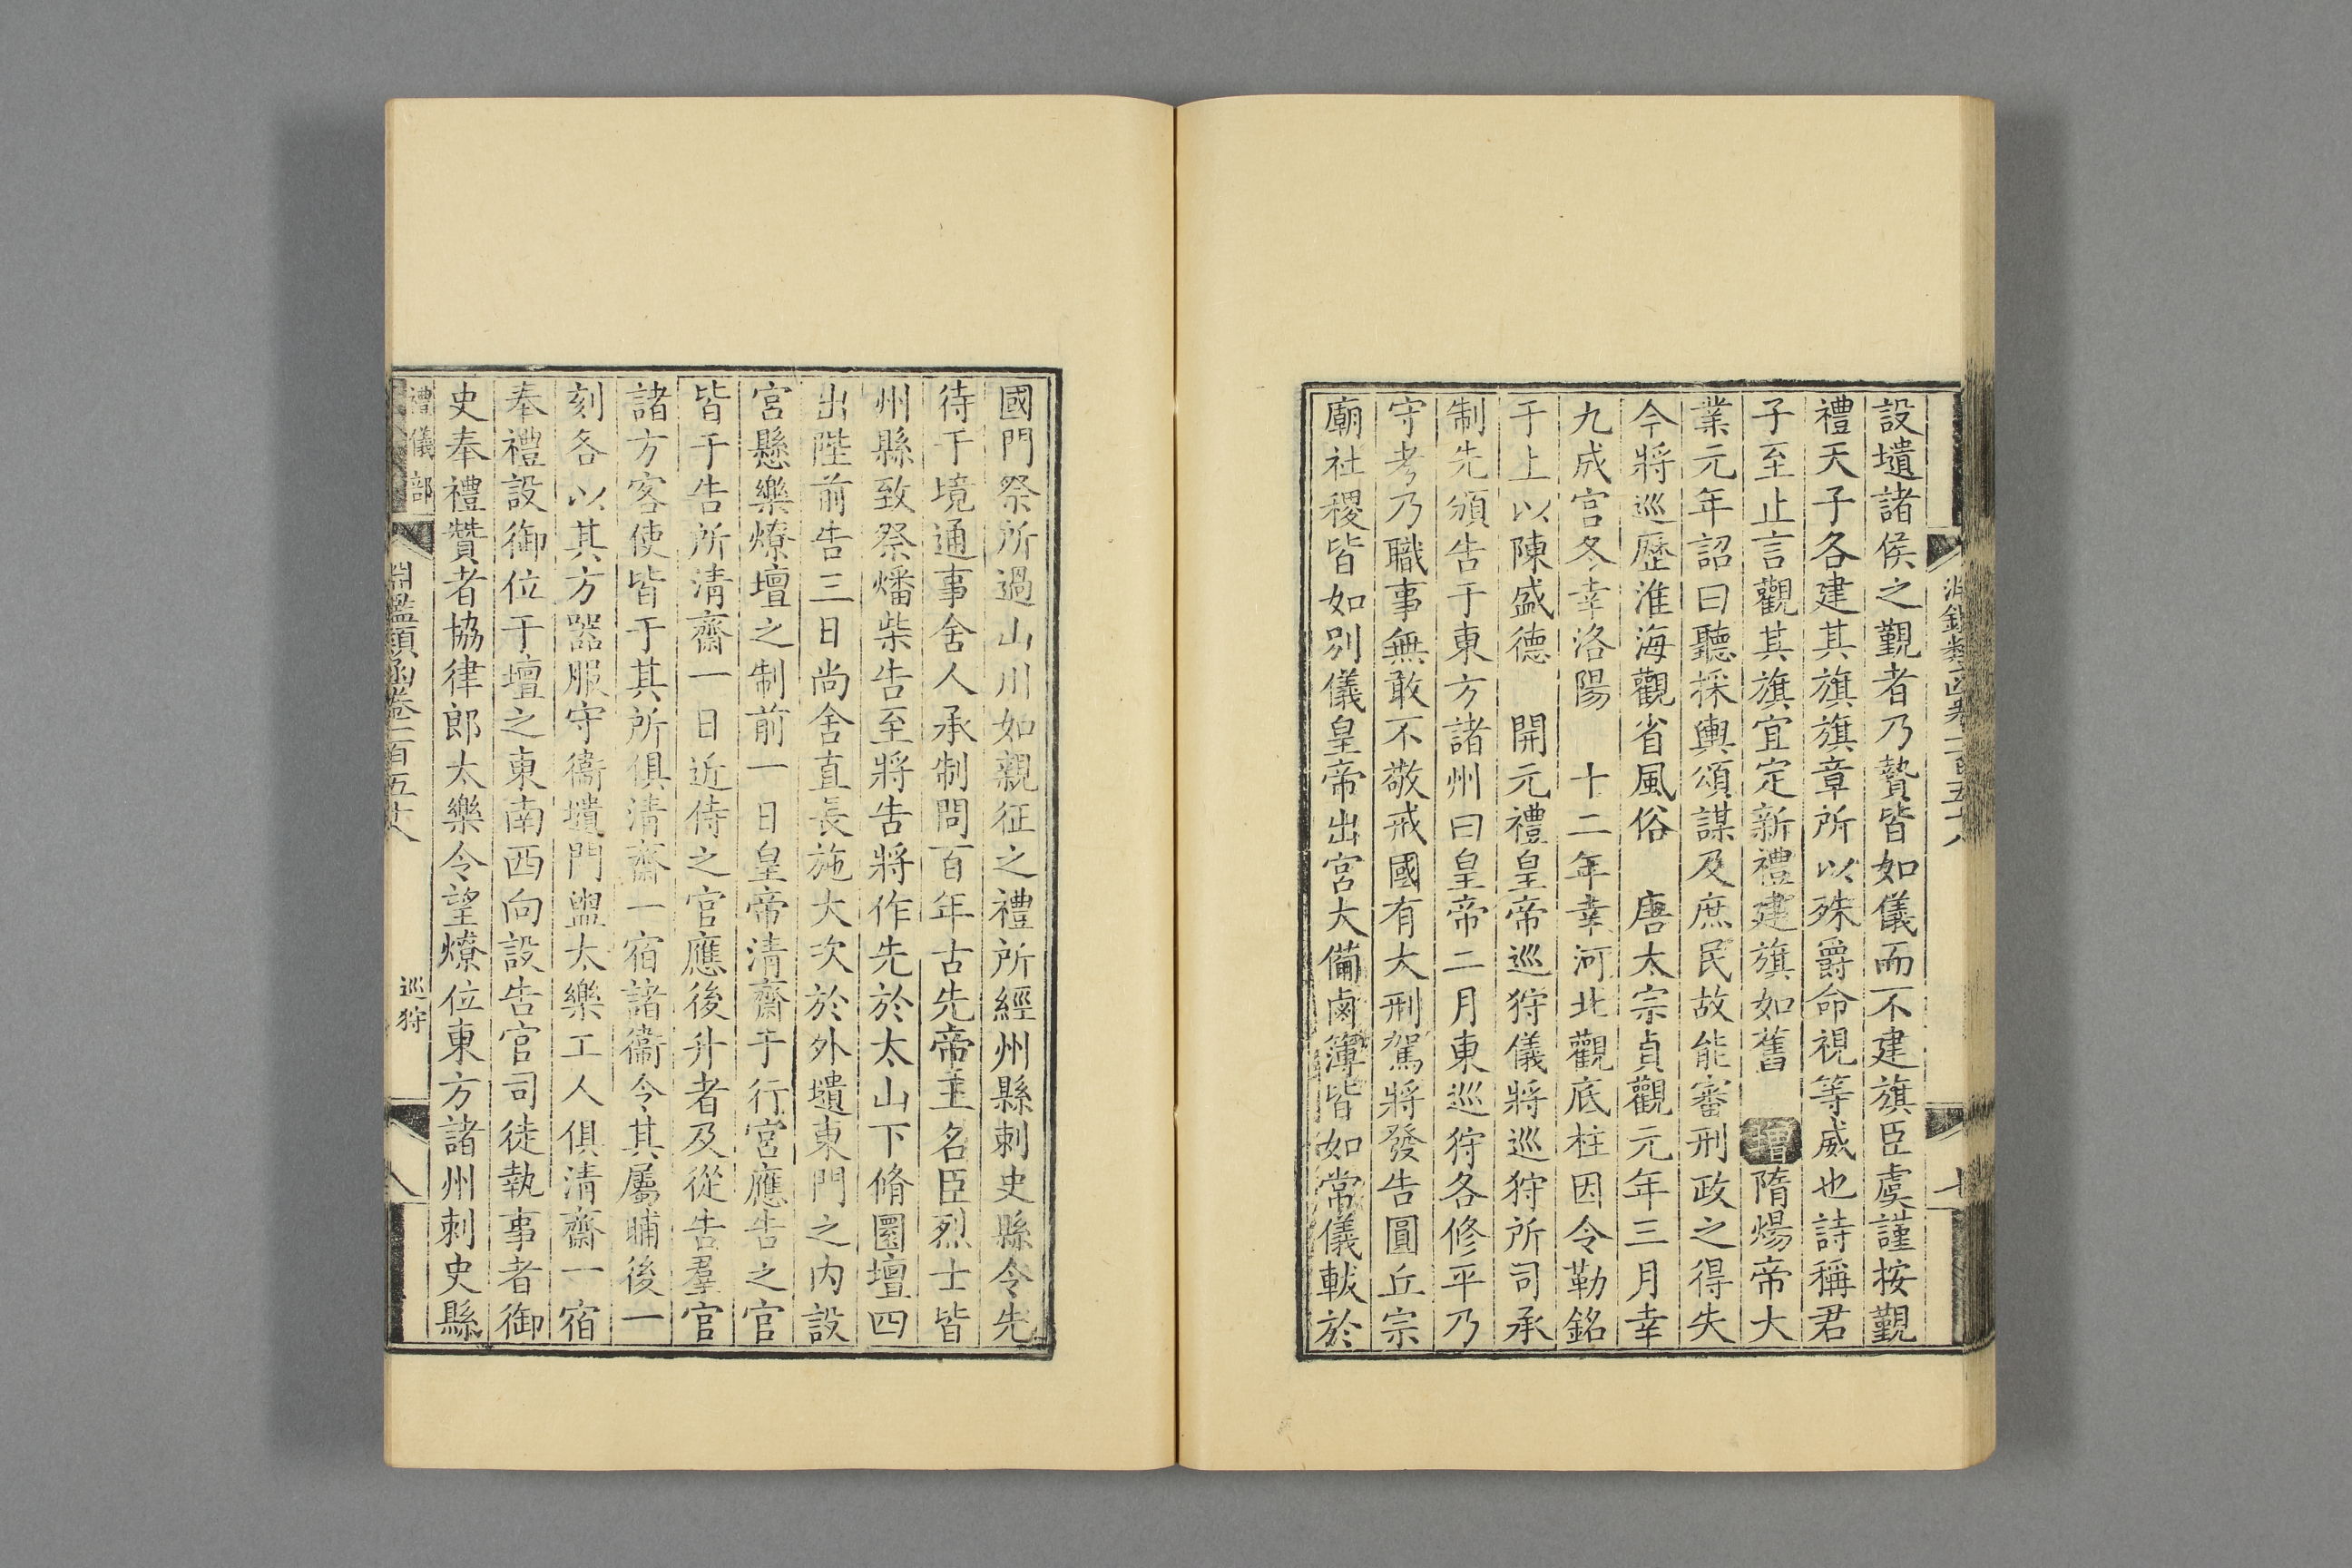 設壝諸侯之覲者乃贄皆如儀而不建旗臣虔謹按覲
禮天子各建其旗旗章所以殊爵命視等威也詩稱君
子至止言觀其旗宜定新禮建旗如舊 增隋煬帝大
業元年詔曰聽採輿頌謀及庶民故能審刑政之得失
今將巡歷淮海觀省風俗 唐太宗貞觀元年三月幸
九成宮冬幸洛陽 十二年幸河北觀底柱因令勒銘
于上以陳盛德 開元禮皇帝巡狩儀將巡狩所司承
制先頒告于東方諸州曰皇帝二月東巡狩各修平乃
守考乃職事無敢不敬戒國有大刑駕將發告圓丘宗
廟社稷皆如別儀皇帝出宮大備鹵簿皆如常儀軷於
國門祭所過山川如親征之禮所經州縣刺史縣令先
待于境通事舍人承制問百年古先帝王名臣烈士皆
州縣致祭燔柴告至將告將作先於太山下脩圜壇四
出陛前告三日尚舍直長施大次於外壝東門之內設
宮懸樂燎壇之制前一日皇帝清齋于行宮應告之官
皆于告所清齋一日近侍之官應後升者及從告羣官
諸方客使皆于其所俱清齋一宿諸衞令其屬晡後一
刻各以其方器服守衞壝門盥太樂工人俱清齋一宿
奉禮設御位于壇之東南西向設告官司徒執事者御
史奉禮贊者協律郎太樂令望燎位東方諸州刺史縣
禮儀部 淵鑑類函卷一百五十八 巡狩 八